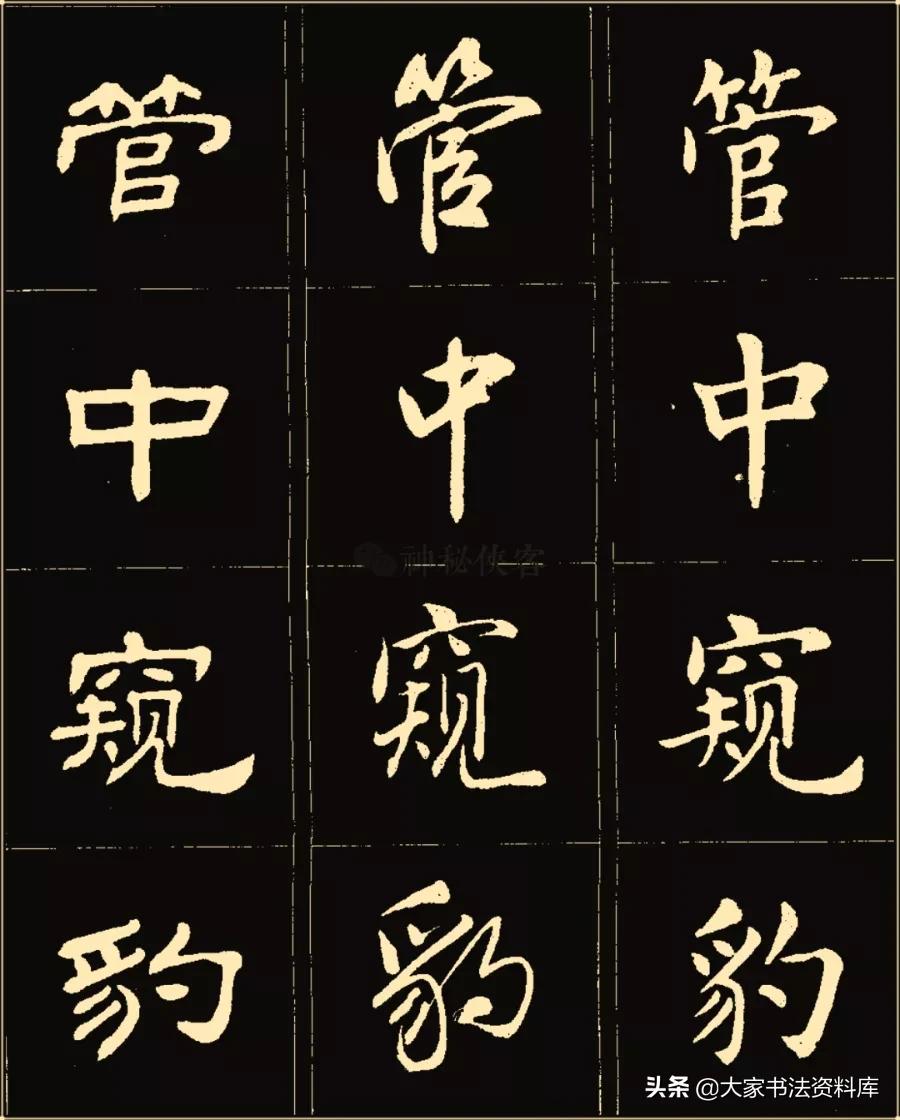 管 管 管
中 中 中
窥 窥 窥
豹 豹 豹
神秘侠客
头条 @大家书法资料库